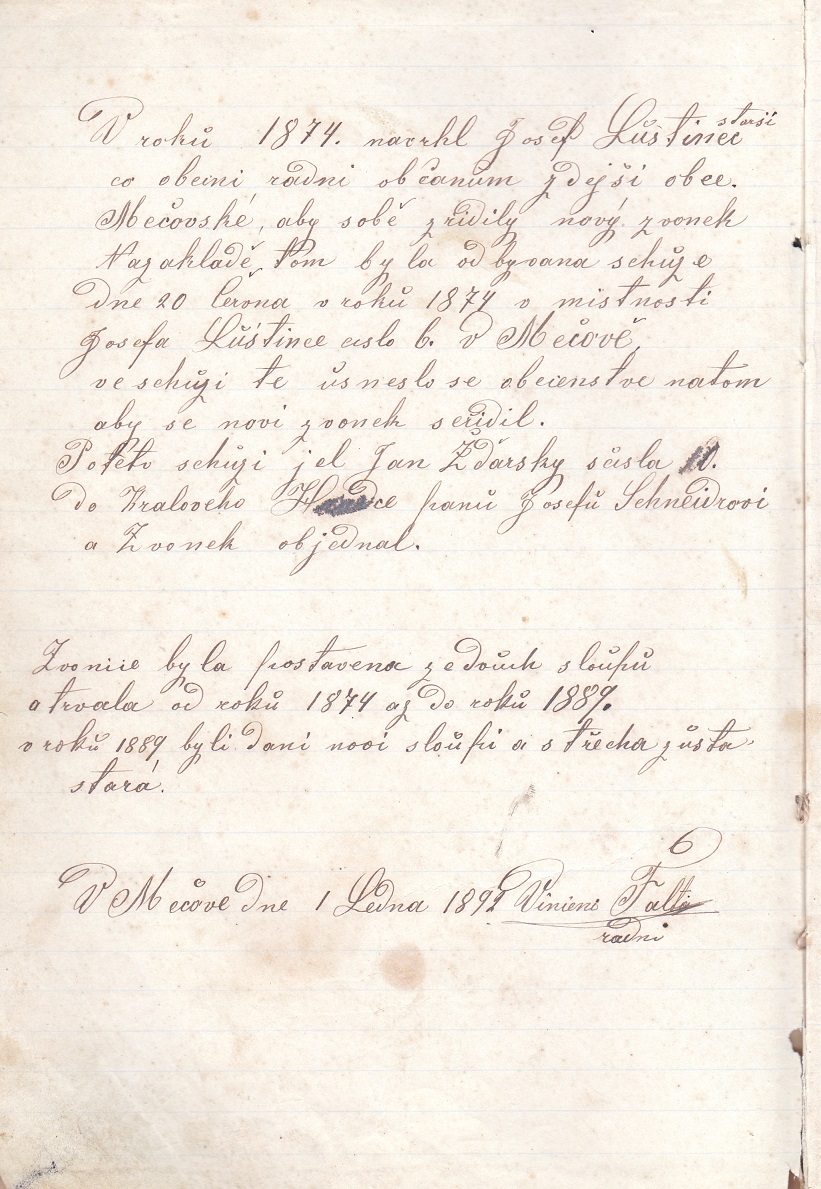 V roků 1874. navrhl Josef Lůštinec starší
co obecni radni občanům zdejší obce.
Mečovské, aby sobě zřidily nový zvonek
Nazakladě, tom byla odbyvana schůze
dne 20 Června v roků 1874 v mistnosti
Josefa Lůštince cislo 6. v Mečově,
ve schůzi te ůsneslo se obecenstve natom
aby se novi zvonek seřidil.
Poteto schůzi jel Jan Žďarsky sčisla 10.
do Kraloveho Hradce panů Josefů Schneidrovi
a Zvonek objednal.
Zvonice byla postavena zedvůch sloůpů
a trvala od roků 1874 až do roků 1889.
v roků 1889 byli dani novi sloůpi a střecha zůsta
stará.
V Mečove dne 1 Ledna 1892 Vinienc Falta
radni